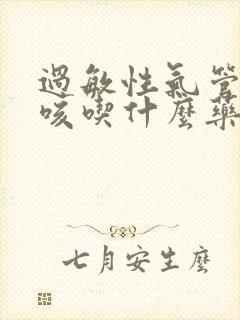 過敏性氣管
咳喫什麼藥
七月安生麼